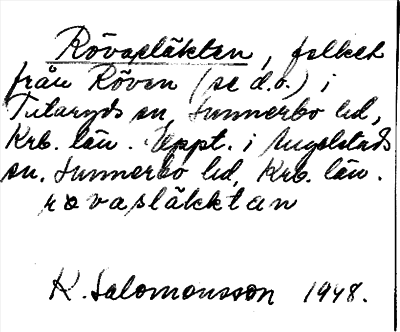 Rövasläkten, folket
från Röven (se d.o.) i
Tutaryds sn, Sunnerbo hd,
Krb. län. Uppt. i Angelstads
sn. Sunnerbo hd, Krb. län.
rovasläkktan
K. Salomonsson 1948.